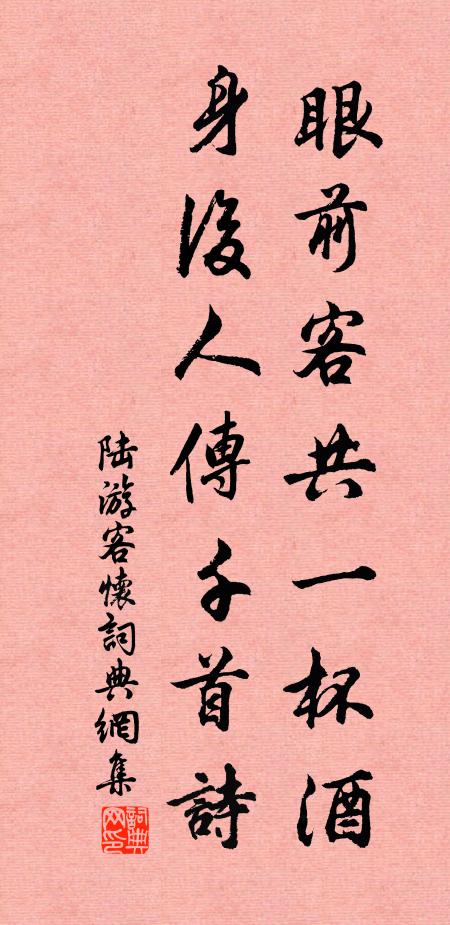 眼前客共一杯酒
身後人傳千首詩
陸游客懷詞典網集
詞典網印